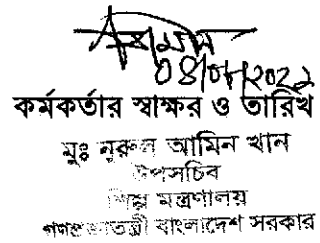 08/08/2022
কর্মকর্তার স্বাক্ষর ও তারিখ
মুঃ নুরুল আমিন খান
উপসচিব
শিল্প মন্ত্রণালয়
গণপ্রজাতন্ত্রী বাংলাদেশ সরকার